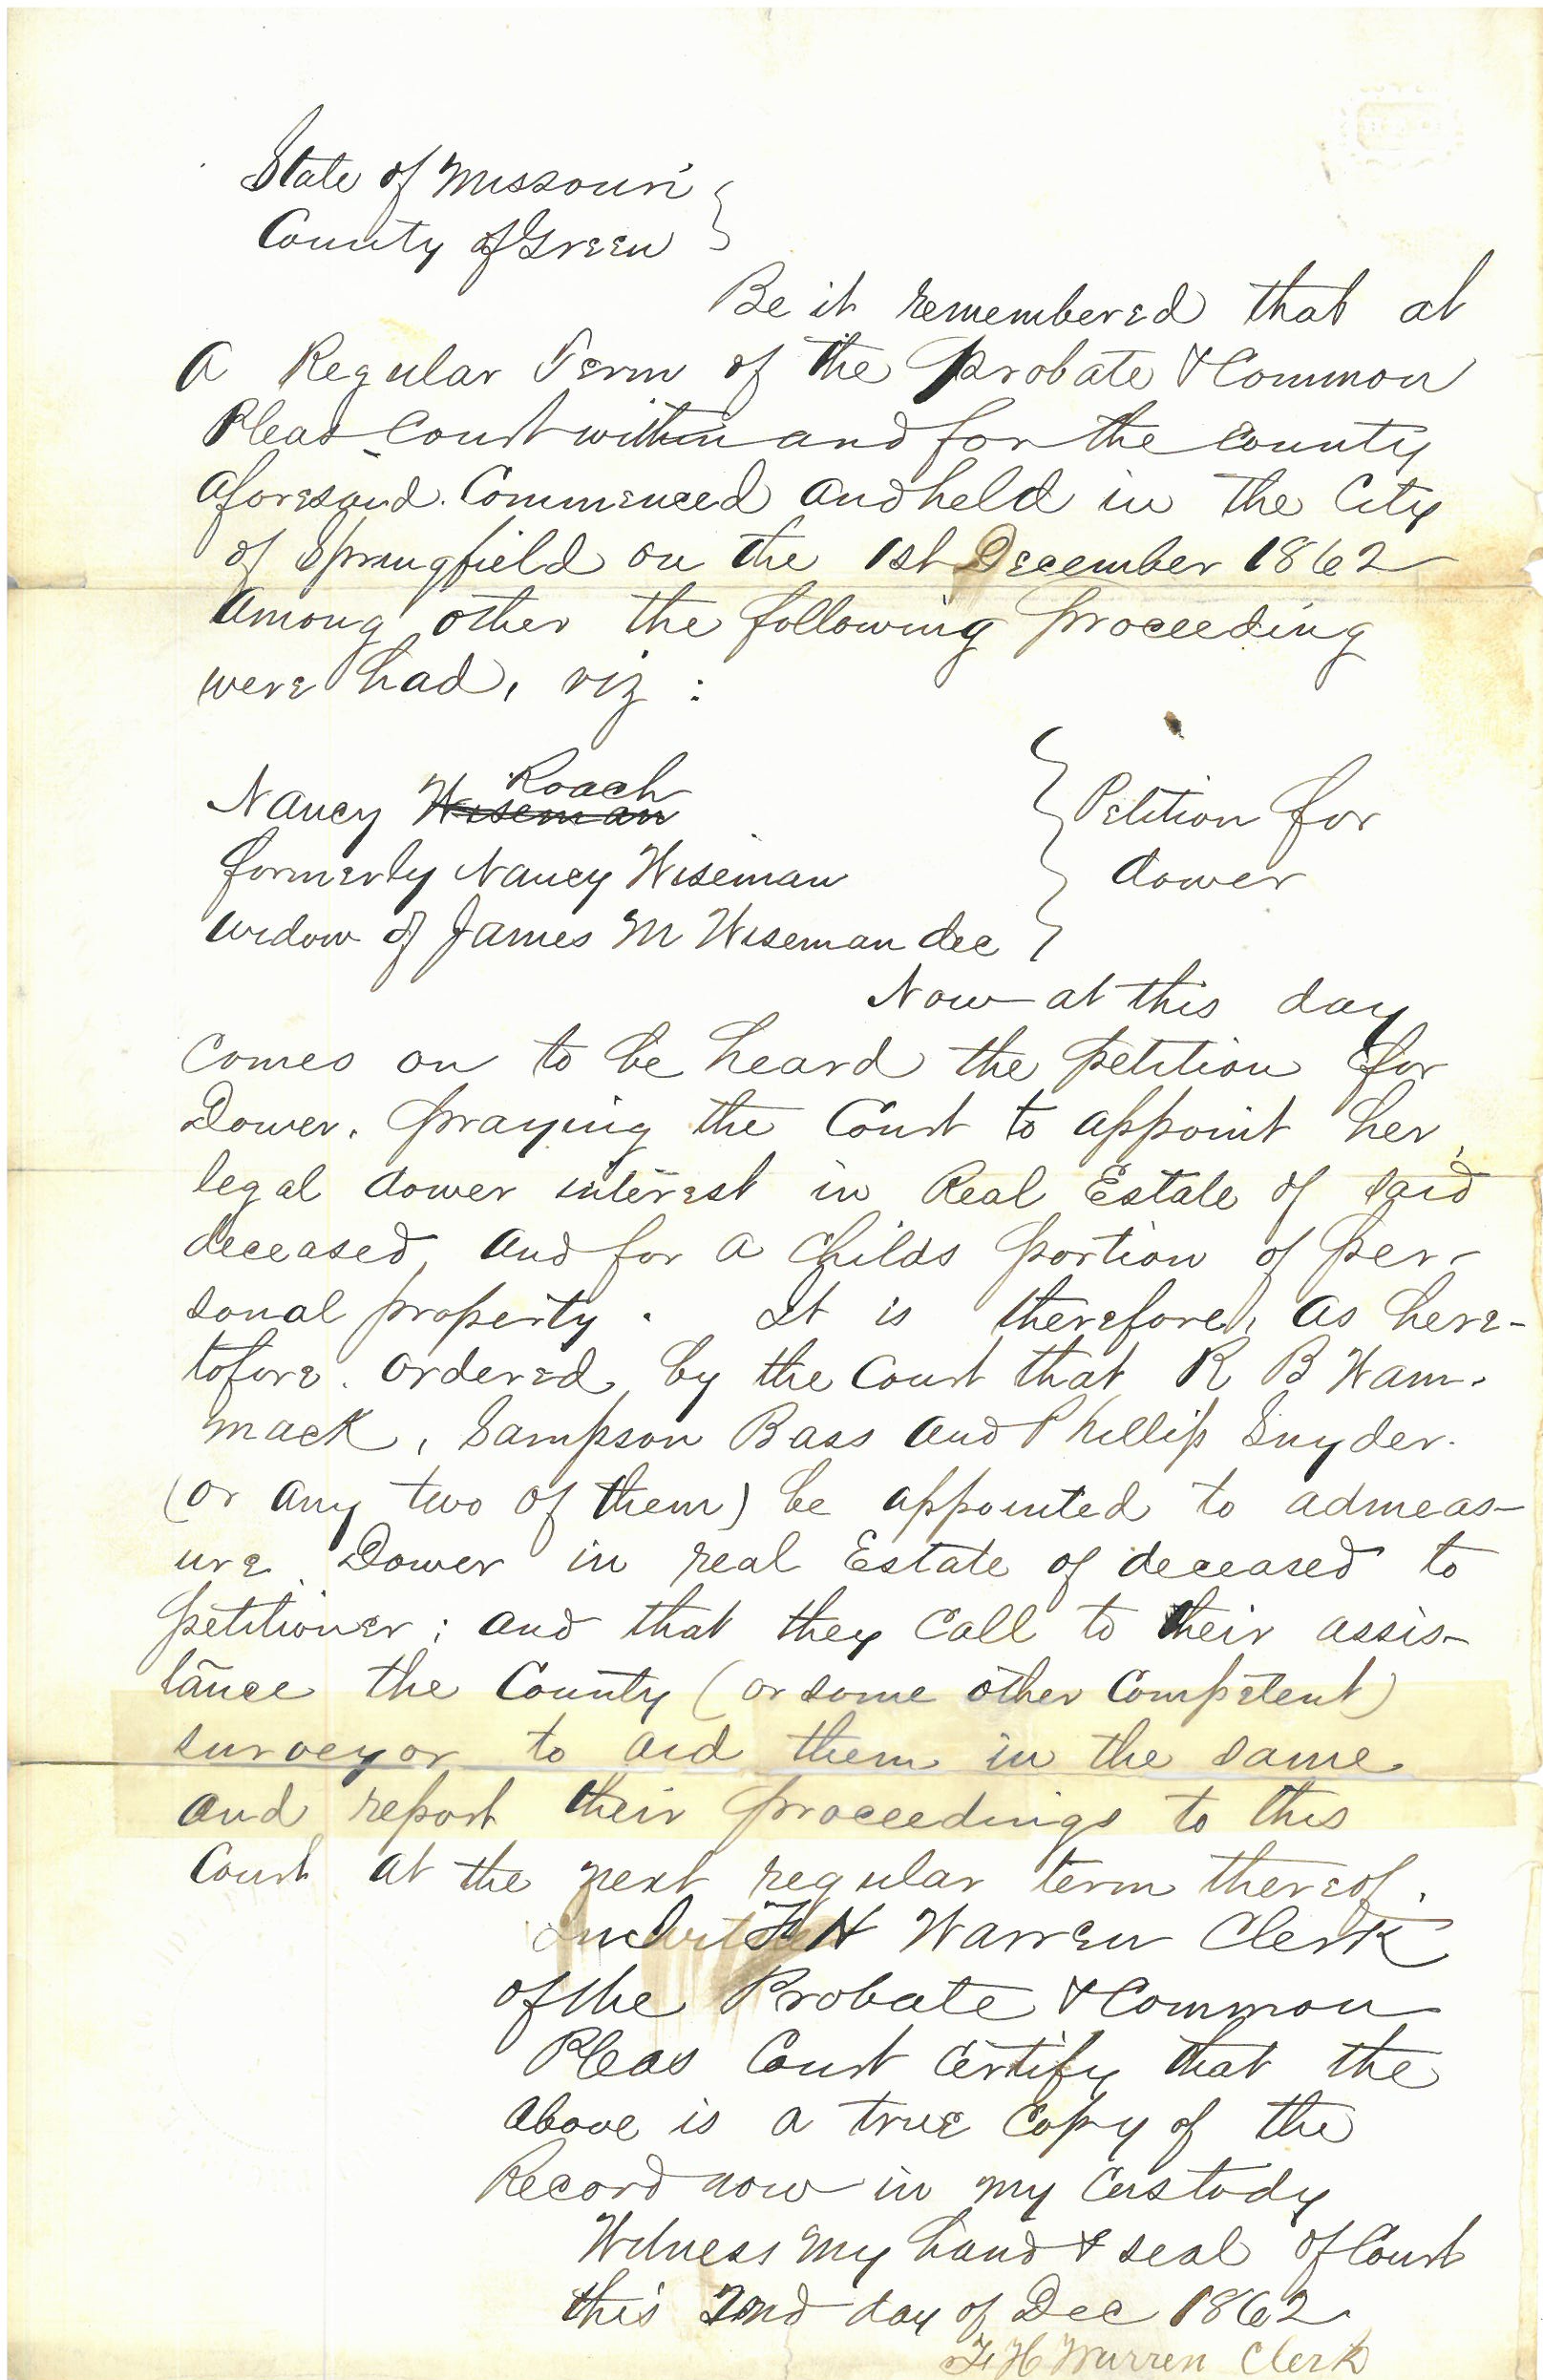 State of Missouri }
County of Green }
Be it remembered that at
a Regular Term of the Probate & Common
Pleas Court within and for the County
aforesaid. Commenced and held in the City
of Springfield on the 1st December 1862
among other the following proceeding
were had, viz :
Roach
Nancy Wiseman } Petition for
formerly Nancy Wiseman } dower
widow of James M Wiseman dec }
Now at this day
comes on to be heard the petition for
Dower. praying the Court to appoint her
legal dower interest in Real Estate of said
deceased, and for a childs portion of per-
sonal property. It is therefore, as here-
tofore. ordered, by the Court that R B Wam-
mack, Sampson Bass and Phillip Snyder.
(or any two of them) be appointed to admeas-
ure Dower in real Estate of deceased to
petitioner; and that they call to their assis-
tance the County (or some other Competent)
surveyor to aid them in the same
and report their proceedings to this
Court at the next regular term thereof.
H Warren Clerk
of the Probate & Common
Pleas Court certify that the
above is a true copy of the
Record now in my custody
Witness my hand & seal of Court
this 2nd day of Dec 1862
H Warren Clerk